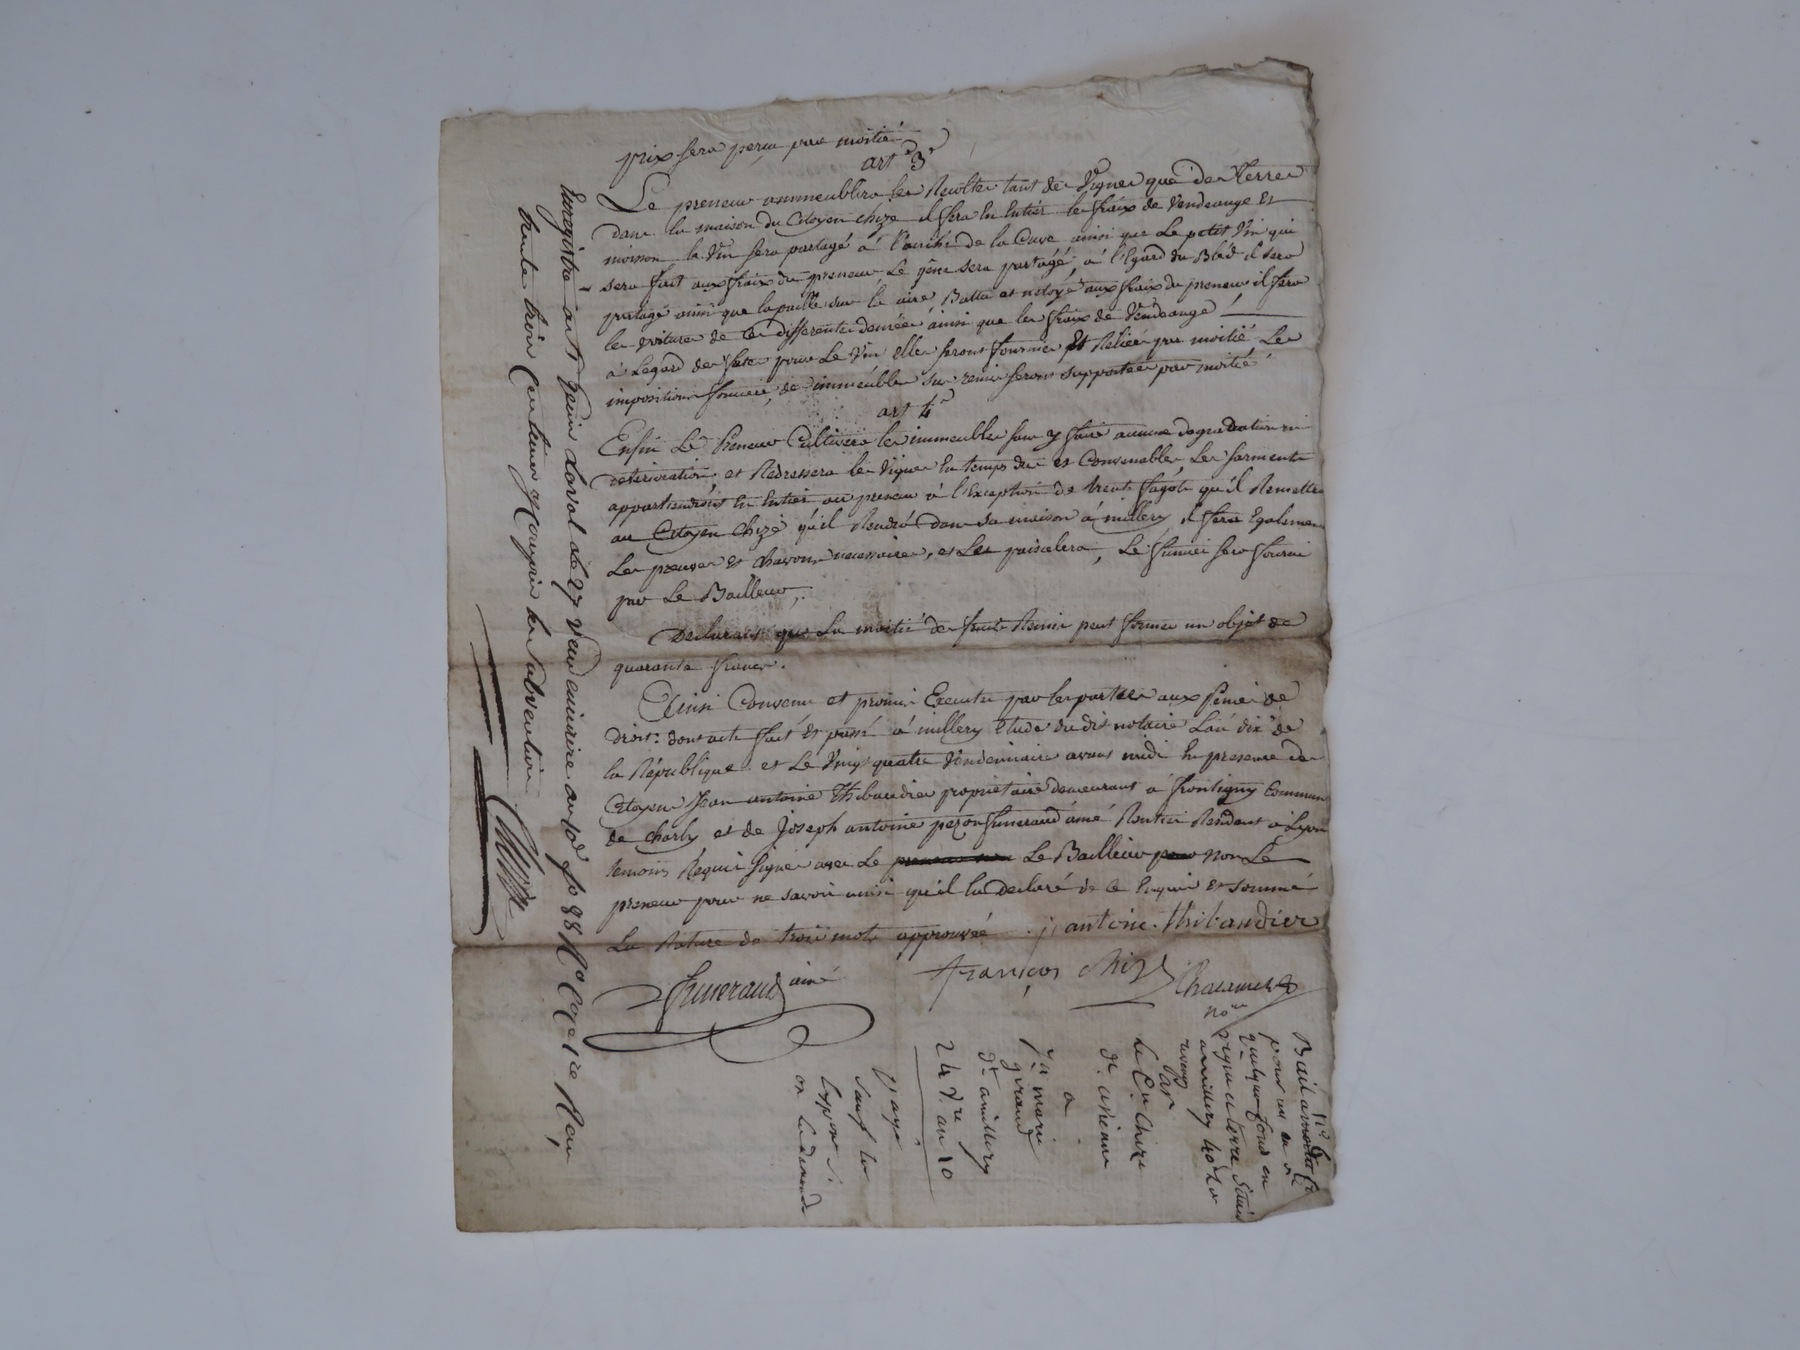 prix sera perçu par moitié
art. 3e
Le preneur ammeublira les Recoltes tant des Vignes que des terres
dans la maison du Citoyen chize il fera En Entier les fraix de Vendange Et
moisson le Vin sera partagé à l'anche de la Cuve ainsi que Le petit Vin qui
sera fait aux fraix du preneur Le gêne sera partagé, à l'Egard du Bléd il sera
partagé ainsi que la paille sur le aire Battu et netoyé aux fraix du preneur il fera
les voitures de ces differentes denrées ainsi que les fraix de Vendange
à Legard des futs pour Le Vin elles seront fournies Et Reliées par moitié Les
impositions foncieres, des immeubles sus remis seront supportées par moitié
art 4e
Enfin Le Preneur Cultivera les immeubles sans y faire aucune degradation ni
deterioration, et Redressera les Vignes En temps dus et Convenables, Les sarments
appartiendront En Entier au preneur à l'Exception de trente fagots qu'il Remettra
au Citoyen Chize qu'il Rendra dans sa maison à millery, il fera Egalement
Les preuves et chavons necessaires, et Les paisselera, Le fumier sera fourni
par Le Bailleur,.
Declarant que La moitié des fruits Remis peut former un objet de
quarante francs.
Ainsi Convenu et promis Executer par les parties aux peines de
droit: dont acte fait Et passé à millery Etude du dit notaire L'an dix de
la République et Le Vingt quatre Vendemiaire avant midi En presence des
Citoyens Jean antoine Thibaudier propriétaire demeurant à frontigny Commune
de Charly et de Joseph antoine pezon funeraud ainé Rentier Résidant à Lyon
temoins Requis signés avec Le Le Bailleur non Le
preneur pour ne savoir ainsi qu'il l'a declaré de ce Enquis et sommé
La Rature de trois mots approuvée. j. antoine. thibaudier
funeraud ainé
françois chize
Chalamel
nore
Enregistré à St Genis Laval le 27 Vendemiaire an 10e fo 88 Ro Case 1re Reçu
trente trois Centimes y Compris la subvention
No 6
Bail à moitié
pour
quelques fonds en
vigne et terre Situés
à millery 40
par
Le Cn Chize
dt. a
a
jn marie
grand
dt a millery
24 Vre. an 10
paye
sauf les
on